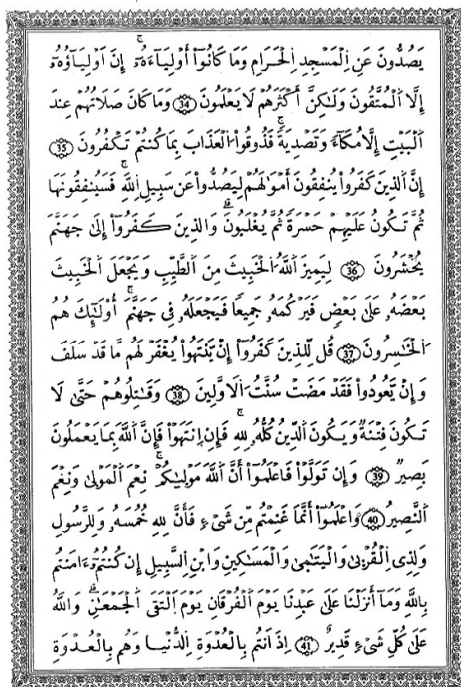 يَصُدُّونَ عَنِ اِ۬لْمَسْجِدِ اِ۬لْحَرَامِ وَمَا كَانُوٓاْ أَوْلِيَآءَهُۥٓۖ إِنَ اَوْلِيَآؤُهُۥٓ
إِلَّا اَ۬لْمُتَّقُونَ وَلَٰكِنَّ أَكْثَرَهُمْ لَا يَعْلَمُونَ 34 وَمَا كَانَ صَلَاتُهُمْ عِندَ
اَ۬لْبَيْتِ إِلَّا مُكَآءٗ وَتَصْدِيَةٗۖ فَذُوقُواْ اُ۬لْعَذَابَ بِمَا كُنتُمْ تَكْفُرُونَ 35
إِنَّ اَ۬لذِينَ كَفَرُواْ يُنفِقُونَ أَمْوَٰلَهُمْ لِيَصُدُّواْ عَن سَبِيلِ اِ۬للَّهِۖ فَسَيُنفِقُونَهَا
ثُمَّ تَكُونُ عَلَيْهِمْ حَسْرَةٗ ثُمَّ يُغْلَبُونَۖ وَالذِينَ كَفَرُوٓاْ إِلَىٰ جَهَنَّمَ
يُحْشَرُونَ 36 لِيَمِيزَ اَ۬للَّهُ اُ۬لْخَبِيثَ مِنَ اَ۬لطَّيِّبِ وَيَجْعَلَ اَ۬لْخَبِيثَ
بَعْضَهُۥ عَلَىٰ بَعْضٖ فَيَرْكُمَهُۥ جَمِيعاٗ فَيَجْعَلَهُۥ فِي جَهَنَّمَۖ أُوْلَٰٓئِكَ هُمُ
اُ۬لْخَٰسِرُونَ 37 قُل لِّلذِينَ كَفَرُوٓاْ إِنْ يَّنتَهُواْ يُغْفَرْ لَهُم مَّا قَدْ سَلَفَ
وَإِنْ يَّعُودُواْ فَقَدْ مَضَتْ سُنَّتُ اُ۬لَاوَّلِينَ 38 وَقَٰتِلُوهُمْ حَتَّىٰ لَا
تَكُونَ فِتْنَةٞ وَيَكُونَ اَ۬لدِّينُ كُلُّهُۥ لِلهِۖ فَإِنِ اِ۪نتَهَوْاْ فَإِنَّ اَ۬للَّهَ بِمَا يَعْمَلُونَ
بَصِيرٞ 39 وَإِن تَوَلَّوْاْ فَاعْلَمُوٓاْ أَنَّ اَ۬للَّهَ مَوْلَىٰكُمْۖ نِعْمَ اَ۬لْمَوْلَىٰ وَنِعْمَ
اَ۬لنَّصِيرُ 40 وَاعْلَمُوٓاْ أَنَّمَا غَنِمْتُم مِّن شَےْءٖ فَأَنَّ لِلهِ خُمُسَهُۥ وَلِلرَّسُولِ
وَلِذِي اِ۬لْقُرْبَىٰ وَالْيَتَٰمَىٰ وَالْمَسَٰكِينِ وَابْنِ اِ۬لسَّبِيلِ إِن كُنتُمُۥٓ ءَامَنتُم
بِاللَّهِ وَمَآ أَنزَلْنَا عَلَىٰ عَبْدِنَا يَوْمَ اَ۬لْفُرْقَانِ يَوْمَ اَ۪لْتَقَى اَ۬لْجَمْعَٰنِۖ وَاللَّهُ
عَلَىٰ كُلِّ شَےْءٖ قَدِيرٌ 41 إِذَ اَنتُم بِالْعُدْوَةِ اِ۬لدُّنْيَا وَهُم بِالْعُدْوَةِ